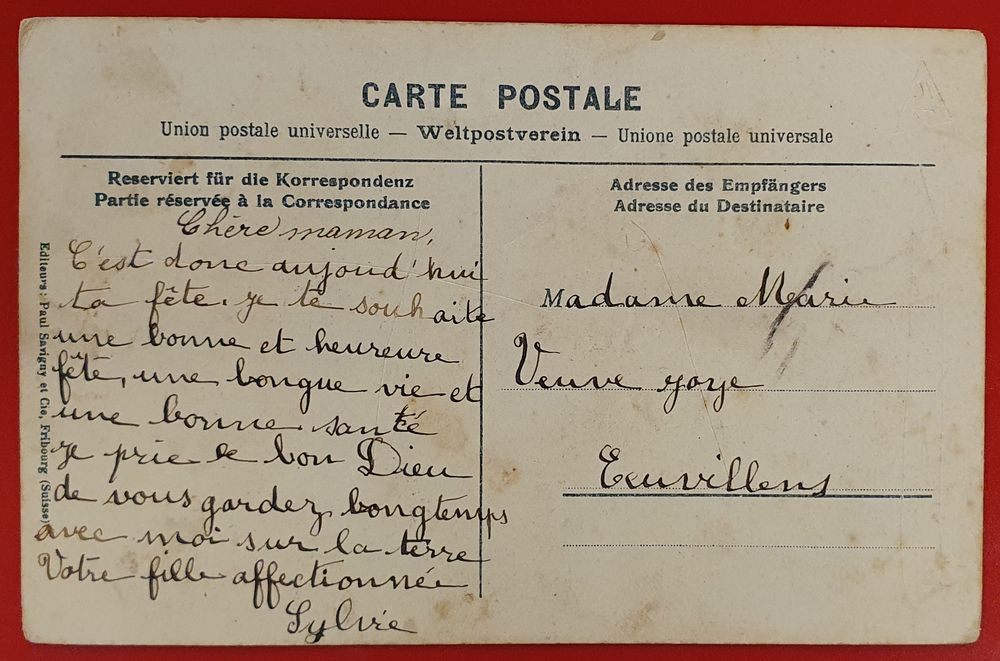 CARTE POSTALE
Union postale universelle — Weltpostverein — Unione postale universale
Reserviert für die Korrespondenz
Partie réservée à la Correspondance
Chère maman,
C'est donc aujoud'hui
ta fête. je te souhaite
une bonne et heureure
fête, une longue vie et
une bonne santé
je prie le bon Dieu
de vous gardez longtemps
avec moi sur la terre
Votre fille affectionnée
Sylvie
Editeurs: Paul Savigny et Cie, Fribourg (Suisse)
Adresse des Empfängers
Adresse du Destinataire
Madame Marie
Veuve yoye
Ecuvillens